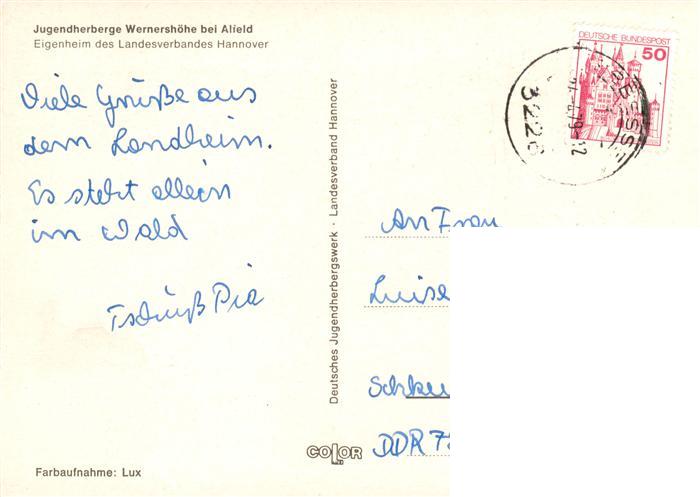 Jugendherberge Wernershöhe bei Alfeld
Eigenheim des Landesverbandes Hannover
Viele Grüße aus
dem Landheim.
Es steht allein
im Wald
Tschüß Pia
Farbaufnahme: Lux
Deutsches Jugendherbergswerk · Landesverband Hannover
COLOR
DEUTSCHE BUNDESPOST
50
3226
An Frau
Luise
DDR